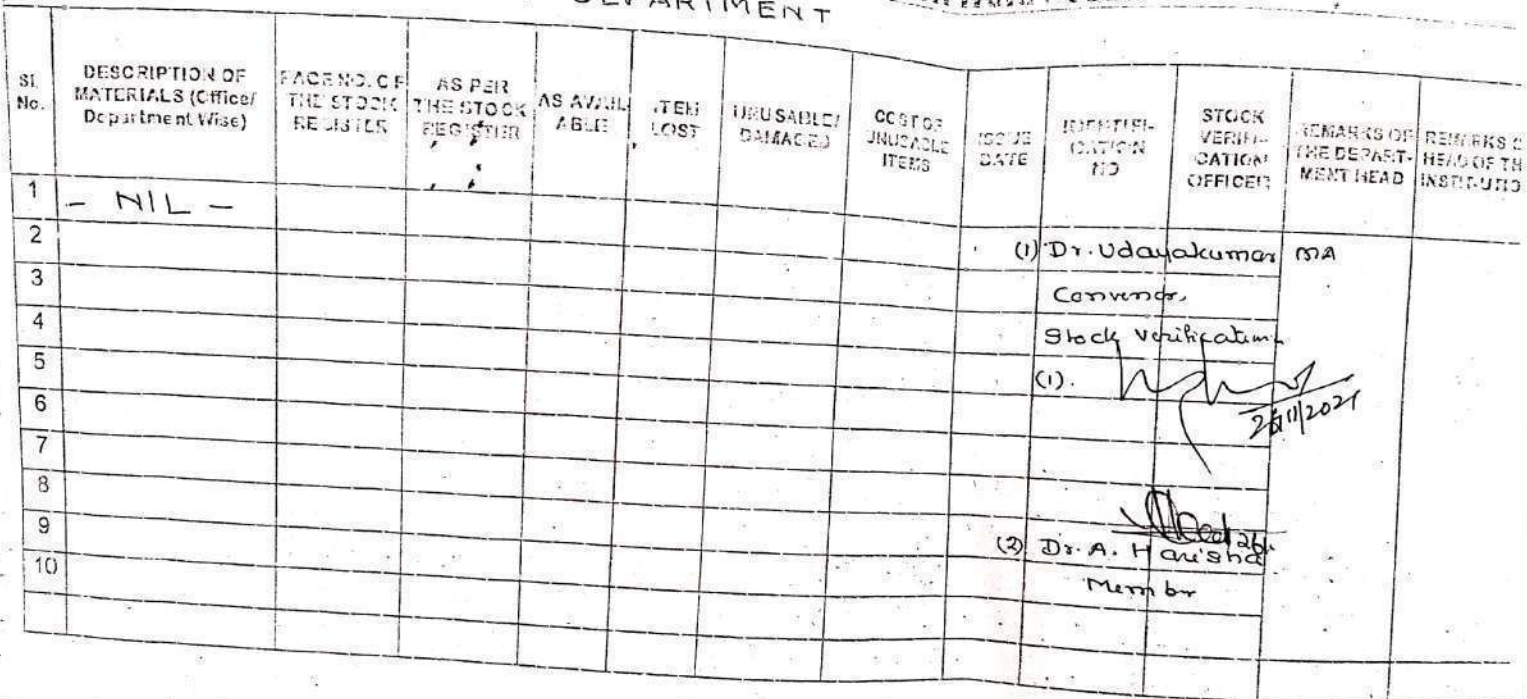 DEPARTMENT
Sl. No.
DESCRIPTION OF MATERIALS (Office/ Department Wise)
PAGE NO. OF THE STOCK REGISTER
AS PER THE STOCK REGISTER
AS AVAIL ABLE
ITEM LOST
UNUSABLE/ DAMAGED
COST OF UNUSABLE ITEMS
ISSUE DATE
IDENTIFI- CATION NO
STOCK VERIFI- CATION OFFICER
REMARKS OF THE DEPART- MENT HEAD
REMARKS HEAD OF TH INSTITUTIO
1 - NIL -
2 (1) Dr. Udayakumar MA
3 Convenor,
4 Stock Verification
5 (1).
6
7
8
9 (2) Dr. A. Harisha
10 Membr